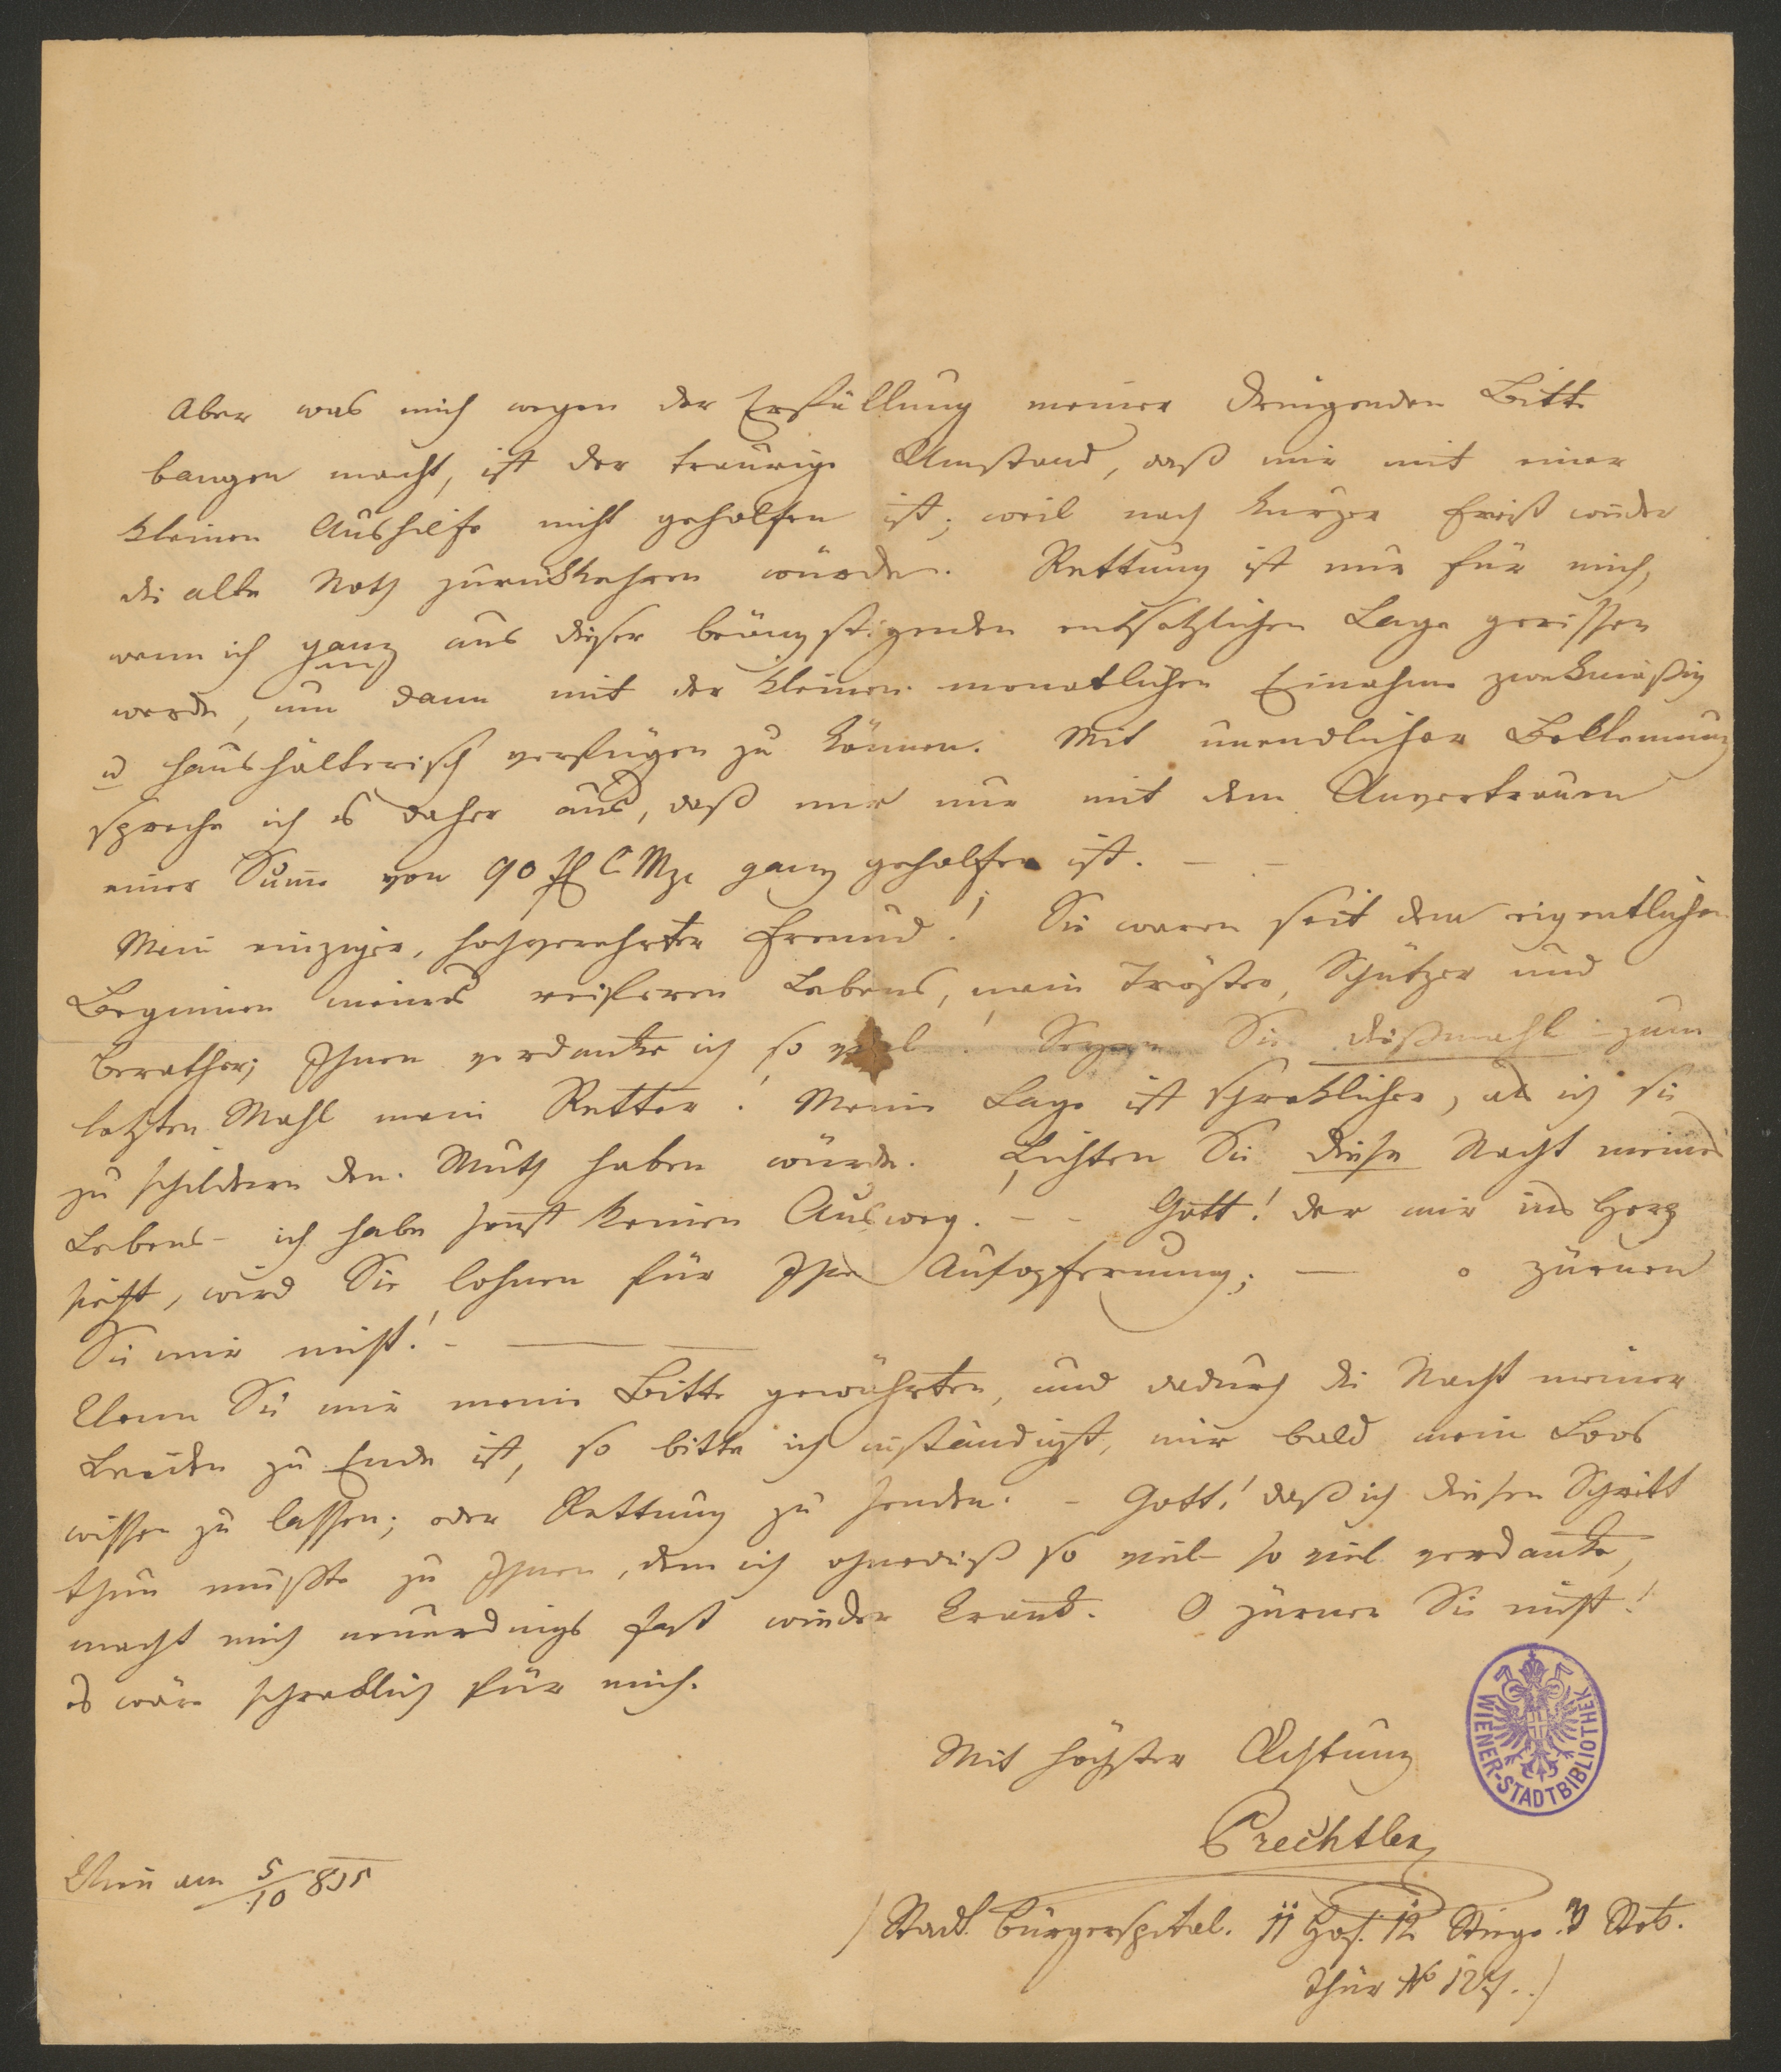 Aber was mich wegen der Erfüllung meiner dringenden Bitte
bangen macht, ist der traurige Umstand, daß mir mit einer
kleinen Aushilfe nicht geholfen ist; weil nach kurzer Frist wieder
die alte Noth zurückkehren würde. Rettung ist nur für mich,
wenn ich ganz aus dieser beängstigenden entsetzlichen Lage gerissen
werde, um dann mit der kleinen monatlichen Einahme zweckmäßig
u haushälterisch verfügen zu können. Mit unendlicher Beklemung
spreche ich es daher aus, daß mir nur mit dem Anvertrauen
einer Sume von 90 fl C Mze ganz geholfen ist. — —
Mein einziger, hochverehrter Freund! Sie waren seit dem eigentlichen
Beginnen meines reiferen Lebens, mein Tröster, Schützer und
Berather; Ihnen verdanke ich so viel! Seyen Sie dießmahl zum
letzten Mahl mein Retter! Meine Lage ist schrecklicher, als ich sie
zu schildern den Muth haben würde. Lichten Sie diese Nacht meines
Lebens – ich habe sonst keinen Ausweg. – – Gott! der mir ins Herz
sieht, wird Sie lohnen für Ihre Aufopferung; — o zürnen
Sie mir nicht! – — —
Wenn Sie mir meine Bitte gewährten, und dadurch die Nacht meiner
Leiden zu Ende ist, so bitte ich inständigst, mir bald mein Loos
wissen zu lassen; oder Rettung zu senden. – Gott! daß ich diesen Schritt
thun mußte zu Ihnen, dem ich ohnedieß so viel – so viel verdanke,
macht mich neuerdings fast wieder krank. O zürnen Sie nicht!
es wäre schrecklich für mich.
Mit höchster Achtung
Prechtler
Wien am 5/10 835
(Stadt. Bürgerspital. 11 Hof. 12 Stiege. 3 Stok.
Thür No 127.)
WIENER-STADTBIBLIOTHEK